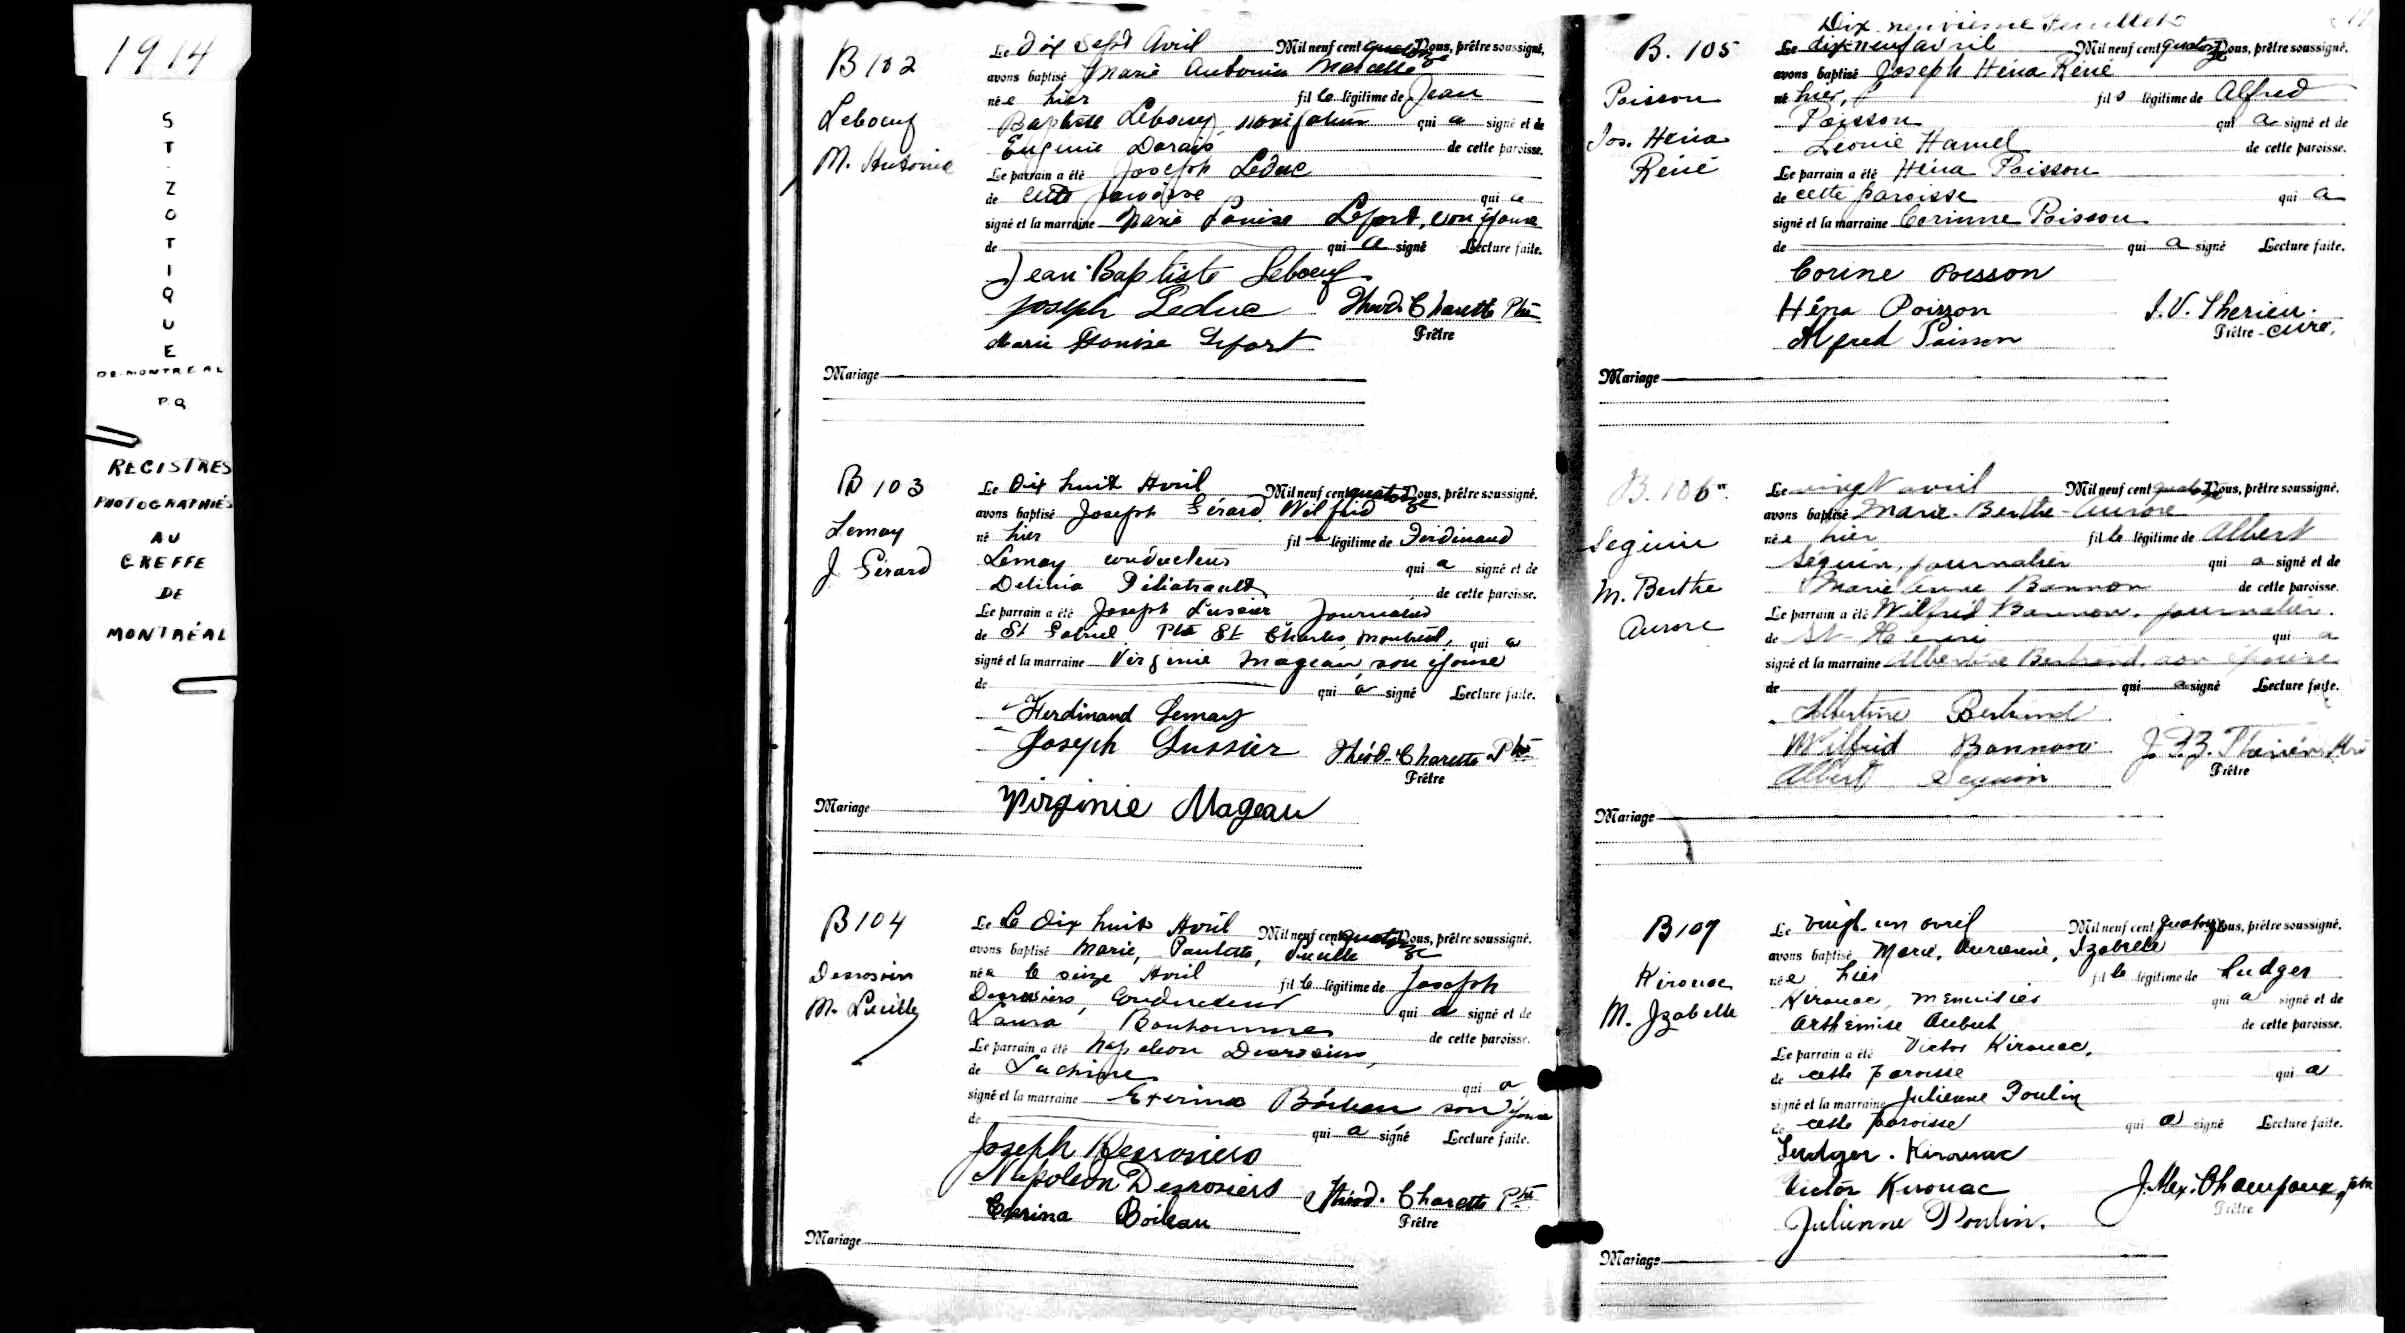 1914
ST-ZOTIQUE
DE MONTREAL
P Q
REGISTRES
PHOTOGRAPHIÉS
AU
GREFFE
DE
MONTRÉAL
B 102
Leboeuf
M. Antonia
Le Dix Sept Avril Mil neuf cent quatorze Nous, prêtre soussigné,
avons baptisé Marie Antonia Marcelle
née hier fille légitime de Jean
Baptiste Leboeuf, navigateur qui a signé et de
Eugenie Darais de cette paroisse.
Le parrain a été Joseph Leduc
de cette paroisse qui a
signé et la marraine Marie Louise Lefort, son épouse
de qui a signé Lecture faite.
Jean-Baptiste Leboeuf
Joseph Leduc Théod. Charette Ptre
Prêtre
Marie Louise Lefort
Mariage
B 103
Lemay
J. Gérard
Le Dix huit Avril Mil neuf cent quatorze Nous, prêtre soussigné,
avons baptisé Joseph Gérard Wilfrid
né hier fils légitime de Ferdinand
Lemay conducteur qui a signé et de
Delinia de cette paroisse.
Le parrain a été Joseph Lussier Journalier
de St Gabriel Pte St Charles, Montreal, qui a
signé et la marraine Virginie Mageau, son épouse
de qui a signé Lecture faite.
Ferdinand Lemay
Joseph Lussier Théod. Charette Ptre
Prêtre
Virginie Mageau
Mariage
B 104
Desrosiers
M. Lucille
Le Le Dix huit Avril Mil neuf cent quatorze Nous, prêtre soussigné,
avons baptisé Marie, Paulette, Lucille
née le seize Avril fille légitime de Joseph
Desrosiers, Conducteur qui a signé et de
Laura Bonhomme de cette paroisse.
Le parrain a été Napoleon Desrosiers,
de Lachine qui a
signé et la marraine Exerina Boileau son épouse
de qui a signé Lecture faite.
Joseph Desrosiers
Napoléon Desrosiers Théod. Charette Ptre
Prêtre
Exerina Boileau
Mariage
Dix neuvième Feuillet
B. 105
Poisson
Jos. Héna
René
Le dix-neuf avril Mil neuf cent quatorze Nous, prêtre soussigné,
avons baptisé Joseph Héna René
né hier, fils légitime de Alfred
Poisson qui a signé et de
Léonie Hamel de cette paroisse.
Le parrain a été Héna Poisson
de cette paroisse qui a
signé et la marraine Corinne Poisson
de qui a signé Lecture faite.
Corine Poisson
Héna Poisson J. V. Therien.
Prêtre - curé,
Alfred Poisson
Mariage
B. 106
Seguin
M. Berthe
Aurore
Le vingt avril Mil neuf cent quatorze Nous, prêtre soussigné,
avons baptisé Marie-Berthe-Aurore
née hier fille légitime de Albert
Séguin, journalier qui a signé et de
Marie Anne Bannon de cette paroisse.
Le parrain a été Wilfrid Bannon, journalier.
de St Henri qui a
signé et la marraine Albertine Bertrand, son épouse
de qui a signé Lecture faite.
Albertine Bertrand
Wilfrid Bannon
Prêtre
Albert Seguin
Mariage
B 107
Kirouac
M. Izabelle
Le vingt-un avril Mil neuf cent quatorze Nous, prêtre soussigné,
avons baptisé Marie, Izabelle
née hier fille légitime de Ludger
Kirouac, menuisier qui a signé et de
Arthémise Aubut de cette paroisse.
Le parrain a été Victor Kirouac,
de cette paroisse qui a
signé et la marraine Julienne Poulin
de cette paroisse qui a signé Lecture faite.
Ludger. Kirouac
Victor Kirouac J. Alex. Champoux, ptre
Prêtre
Julienne Poulin.
Mariage